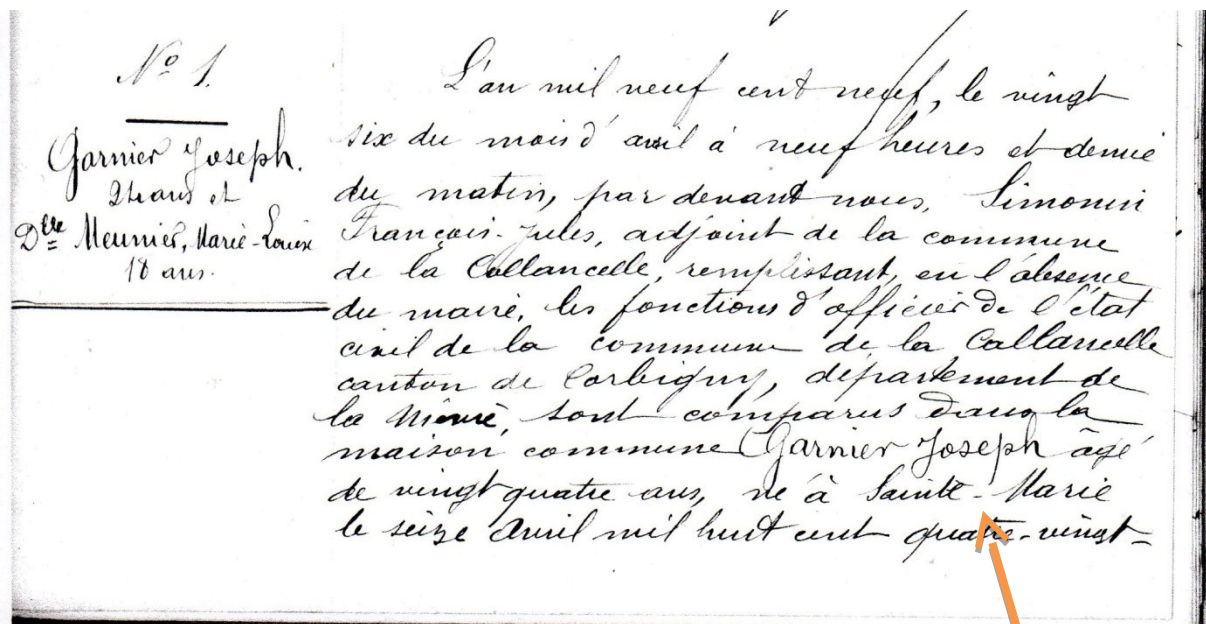 N° 1.
Garnier Joseph.
24 ans et
Dlle Meunier, Marie-Louise
18 ans.
L'an mil neuf cent neuf, le vingt
six du mois d'avril à neuf heures et demie
du matin, par devant nous, Simonin
François-Jules, adjoint de la commune
de la Collancelle, remplissant, en l'absence
du maire, les fonctions d'officier de l'état
civil de la commune de la Collancelle
canton de Corbigny, département de
la Nièvre, sont comparus dans la
maison commune Garnier Joseph âgé
de vingt quatre ans, né à Sainte-Marie
le seize Avril mil huit cent quatre-vingt-